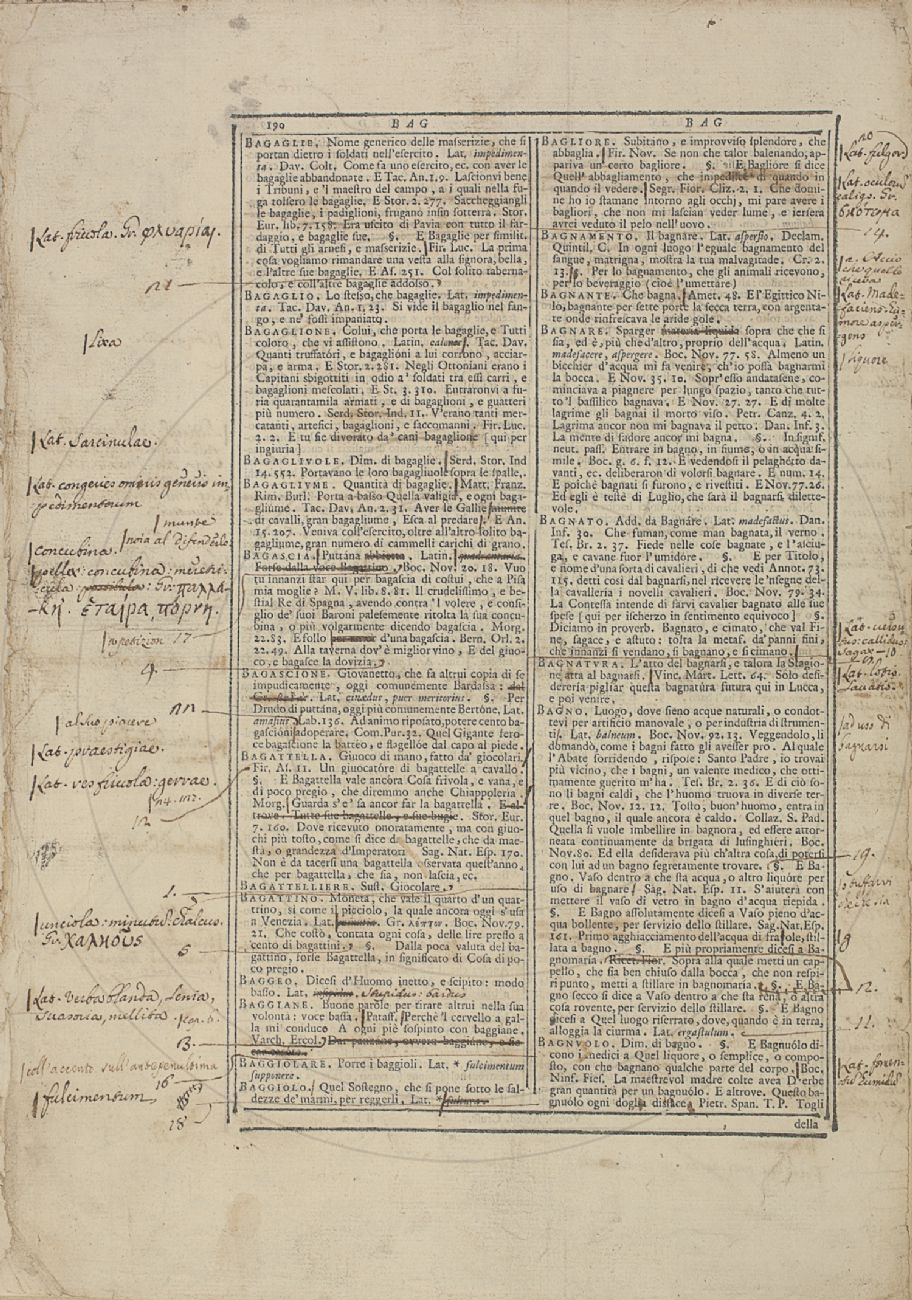 190 BAG BAG
BAGAGLIE. Nome generico delle masserizie, che si
portan dietro i soldati nell'esercito. Lat. impedimen-
ta. Dav. Colt. Come fa uno esercito, ec. con aver le
bagaglie abbandonate. E Tac. An. 1. 9. Lascionvi bene
i Tribuni, e 'l maestro del campo, a i quali nella fu-
ga tolsero le bagaglie. E Stor. 2. 277. Saccheggiangli
le bagaglie, i padiglioni, frugano infin sotterra. Stor.
Eur. lib. 7. 158. Era uscito di Pavia con tutto il far-
daggio, e bagaglie sue. §. E Bagaglie per similit.
di Tutti gli arnesi, e masserizie. Fir. Luc. La prima
cosa vogliamo rimandare una vesta alla signora, bella,
e l'altre sue bagaglie. E As. 251. Col solito taberna-
colo, e coll'altre bagaglie addosso.
BAGAGLIO. Lo stesso, che bagaglie. Lat. impedimen-
ta. Tac. Dav. An. 1. 23. Si vide il bagaglio nel fan-
go, e ne' fossi impaniato.
BAGAGLIONE. Colui, che porta le bagaglie, e Tutti
coloro, che vi assistono. Latin. calones. Tac. Dav.
Quanti truffatori, e bagaglioni a lui corsono, acciar-
pa, e arma. E Stor. 2. 281. Negli Ottoniani erano i
Capitani sbigottiti in odio a' soldati tra essi carri, e
bagaglioni mescolati. E St. 3. 310. Entraronvi a fu-
ria quarantamila armati, e di bagaglioni, e guatteri
più numero. Serd. Stor. Ind. 11. V'erano tanti mer-
catanti, artefici, bagaglioni, e saccomanni. Fir. Luc.
2. 2. E tu sie divorato da' cani bagaglione [ qui per
ingiuria ]
BAGAGLIVOLE. Dim. di bagaglie. Serd. Stor. Ind
14. 552. Portavano le loro bagagliuole sopra le spalle.
BAGAGLIVME. Quantità di bagaglie. Matt. Franz.
Rim. Burl. Porta a basso Quella valigia, e ogni baga-
gliume. Tac. Dav. An. 2. 31. Aver le Gallie smunte
di cavalli, gran bagagliume, Esca al predare. E An.
15. 207. Veniva coll'esercito, oltre all'altro solito ba-
gagliume, gran numero di cammelli carichi di grano.
BAGASCIA. Puttana abbietta. Latin.
Forse dalla voce Bagascio. Boc. Nov. 20. 18. Vuo
tu innanzi star qui per bagascia di costui, che a Pisa
mia moglie? M. V. lib. 8. 81. Il crudelissimo, e be-
stial Re di Spagna, avendo contra 'l volere, e consi-
glio de' suoi Baroni palesemente ritolta la sua concu-
bina, o più volgarmente dicendo bagascia. Morg.
22. 83. E follo d'una bagascia. Bern. Orl. 2.
22. 49. Alla taverna dov' è miglior vino, E del giuo-
co, e bagasce la dovizia.
BAGASCIONE. Giovanetto, che fa altrui copia di se
impudicamente, oggi comunemente Bardassa:
Lat. cinædus, puer meritorius. §. Per
Drudo di puttana, oggi più comunemente Bertone, Lat.
amasius. Lab. 136. Ad animo riposato, potere cento ba-
gascioni adoperare. Com. Pur. 32. Quel Gigante fero-
ce bagascione la battèo, e flagellòe dal capo al piede.
BAGATTELLA. Giuoco di mano, fatto da' giocolari.
Fir. As. 11. Un giuocatore di bagattelle a cavallo.
§. E Bagattella vale ancora Cosa frivola, e vana, e
di poco pregio, che diremmo anche Chiappoleria.
Morg. Guarda s'e' sa ancor far la bagattella. E al-
trove. Tutte sue bagattelle, e sue bugie. Stor. Eur.
7. 160. Dove ricevuto onoratamente, ma con giuo-
chi più tosto, come si dice da bagattelle, che da mae-
stà, o grandezza d'Imperatori Sag. Nat. Esp. 170.
Non è da tacersi una bagattella osservata quell'anno,
che per bagattella, che sia, non lascia, ec.
BAGATTELLIERE. Sust. Giocolare.
BAGATTINO. Moneta, che vale il quarto d'un quat-
trino, si come il picciolo, la quale ancora oggi s'usa
a Venezia. Lat. Gr. λέπτον. Boc. Nov. 79.
21. Che costò, contata ogni cosa, delle lire presso a
cento di bagattini. §. Dalla poca valuta del ba-
gattino, forse Bagattella, in significato di Cosa di po-
co pregio.
BAGGEO. Dicesi d'Huomo inetto, e scipito: modo
basso. Lat. stupidus: bardus
BAGGIANE. Buone parole per tirare altrui nella sua
volontà: voce bassa. Pataff. Perchè 'l cervello a gal-
la mi conduce A ogni piè sospinto con baggiane.
Varch. Ercol. Dar panzane, ovvero baggiane, o fic-
BAGGIOLARE. Porre i baggioli. Lat. * fulcimentum
supponere.
BAGGIOLO. Quel Sostegno, che si pone sotto le sal-
dezze de' marmi, per reggerli, Lat. *
BAGLIORE. Subitano, e improvviso splendore, che
abbaglia. Fir. Nov. Se non che talor balenando, ap-
pariva un certo bagliore. §. E Bagliore si dice
Quell' abbagliamento, che impedisce di quando in
quando il vedere. Segr. Fior. Cliz. 2. 1. Che domi-
ne ho io stamane intorno agli occhj, mi pare avere i
bagliori, che non mi lascian veder lume, e iersera
avrei veduto il pelo nell'uovo.
BAGNAMENTO. Il bagnare. Lat. aspersio. Declam.
Quintil. C. In ogni luogo l'eguale bagnamento del
sangue, matrigna, mostra la tua malvagitade. Cr. 2.
13. §. Per lo bagnamento, che gli animali ricevono,
per lo beveraggio (cioè l'umettare)
BAGNANTE. Che bagna. Amet. 48. E l'Egittico Ni-
lo, bagnante per sette porte la secca terra, con argenta-
te onde rinfrescava le aride gole.
BAGNARE. Sparger materia liquida sopra che che si
sia, ed è, più che d'altro, proprio dell'acqua. Latin.
madefacere, aspergere. Boc. Nov. 77. 58. Almeno un
bicchier d'acqua mi fa venire, ch'io possa bagnarmi
la bocca. E Nov. 35. 10. Sopr'esso andatasene, co-
minciava a piagnere per lungo spazio, tanto che tut-
to 'l bassilico bagnava. E Nov. 27. 27. E di molte
lagrime gli bagnai il morto viso. Petr. Canz. 4. 2.
Lagrima ancor non mi bagnava il petto. Dan. Inf. 3.
La mente di sudore ancor mi bagna. §. In signif.
neut. pass. Entrare in bagno, in fiume, o in acqua si-
mile. Boc. g. 6. f. 12. E vedendosi il pelaghetto da-
vanti, ec. deliberaron di volersi bagnare. E num. 14.
E poichè bagnati si furono, e rivestiti. E Nov. 77. 26.
Ed egli è testè di Luglio, che sarà il bagnarsi dilette-
vole.
BAGNATO. Add. da Bagnare. Lat. madefactus. Dan.
Inf. 30. Che fuman, come man bagnata, il verno;
Tes. Br. 2. 37. Fiede nelle cose bagnate, e l'asciu-
ga, e cavane fuor l'umidore. §. E per Titolo,
e nome d'una sorta di cavalieri, di che vedi Annot. 73.
115. detti così dal bagnarsi, nel ricevere le 'nsegne del-
la cavalleria i novelli cavalieri. Boc. Nov. 79. 34.
La Contessa intende di farvi cavalier bagnato alle sue
spese [ qui per ischerzo in sentimento equivoco ] §.
Diciamo in proverb. Bagnato, e cimato, che val Fi-
ne, sagace, e astuto: tolta la metaf. da' panni fini,
che innanzi si vendano, si bagnano, e si cimano.
BAGNATVRA. L'atto del bagnarsi, e talora la Stagio-
ne atta al bagnarsi. Vinc. Mart. Lett. 64. Solo desi-
dereria pigliar questa bagnatùra futura qui in Lucca,
e poi venire.
BAGNO. Luogo, dove sieno acque naturali, o condot-
tevi per artificio manovale, o per industria di strumen-
ti. Lat. balneum. Boc. Nov. 92. 13. Veggendolo, li
domandò, come i bagni fatto gli avesser pro. Al quale
l'Abate sorridendo, rispose: Santo Padre, io trovai
più vicino, che i bagni, un valente medico, che otti-
mamente guerito m'ha. Tes. Br. 2. 36. E di ciò so-
no li bagni caldi, che l'huomo truova in diverse ter-
re. Boc. Nov. 12. 12. Tosto, buon' huomo, entra in
quel bagno, il quale ancora è caldo. Collaz. S. Pad.
Quella si vuole imbellire in bagnora, ed essere attor-
neata continuamente da brigata di lusinghieri. Boc.
Nov. 80. Ed ella desiderava più ch'altra cosa, di potersi
con lui ad un bagno segretamente trovare. §. E Ba-
gno. Vaso dentro a che sta acqua, o altro liquòre per
uso di bagnare. Sag. Nat. Esp. 11. S'aiuterà con
mettere il vaso di vetro in bagno d'acqua tiepida.
§. E Bagno assolutamente dicesi a Vaso pieno d'ac-
qua bollente, per servizio dello stillare. Sag. Nat. Esp.
161. Primo agghiacciamento dell'acqua di fragole, stil-
lata a bagno. §. E più propriamente dicesi a Ba-
gnomaria. Ricet. Fior. Sopra alla quale metti un cap-
pello, che sia ben chiuso dalla bocca, che non respi-
ri punto, metti a stillare in bagnomaria. §. E Ba-
gno secco si dice a Vaso dentro a che sta rena, o altra
cosa rovente, per servizio dello stillare. §. E Bagno
dicesi a Quel luogo riserrato, dove, quando è in terra,
alloggia la ciurma. Lat. ergastulum.
BAGNVOLO. Dim. di bagno. §. E Bagnuòlo di-
cono i medici a Quel liquore, o semplice, o compo-
sto, con che bagnano qualche parte del corpo. Boc.
Ninf. Fies. La maestrevol madre colte avea D'erbe
gran quantità per un bagnuòlo. E altrove. Questo ba-
gnuòlo ogni doglia disface. Pietr. Span. T. P. Togli
della
Lixa
Lat. Sarcinulae.
Lat. congeries omnis generis im
pedimentorum
concubina.
ἑταίρα, πόρνη.
17
9.
Lat. praestigiae.
12
1.
6
Lat. Verba blanda, lenia,
suasoria, mellita.
13.
coll' accento sull' antepenultima
16
fulcimentum
18
20
Lat. fulgor
14.
liquore
ad uso di
bagnarsi
19.
12.
11.